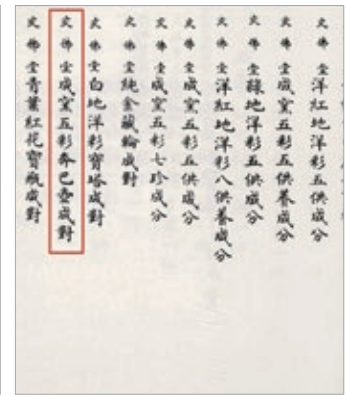 佛堂洋紅地洋彩五供成分
佛堂成窰五彩五供養成分
佛堂綠地洋彩五供成分
佛堂洋紅地洋彩八供養成分
佛堂成窰五彩五供成分
佛堂成窰五彩七珍成分
佛堂純金藏輪成對
佛堂白地洋彩寶塔成對
佛堂成窰五彩奔巴壺成對
佛堂青葉紅花寶瓶成對